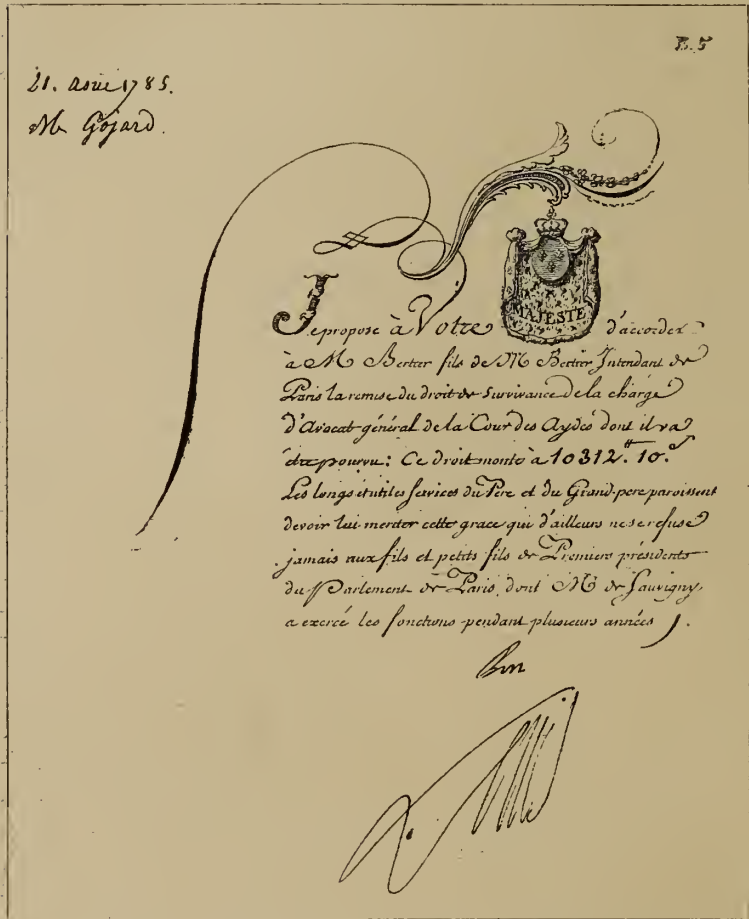 B. 5
21. Aout 1785.
M. Gojard.
Je propose à Votre MAJESTÉ d'accorder
à M Bertier fils de M Bertier Intendant de
Paris la remise du droit de Survivance de la charge
d'Avocat général de la Cour des Aydes dont il va
être pourvu: Ce droit monte à 10312.ᵗᵗ 10.ˢ
Les longs et utiles services du Père et du Grand-pere paroissent
devoir lui meriter cette grace qui d'ailleurs ne se refuse
jamais aux fils et petits fils de Premiers présidents
du Parlement de Paris, dont M. de Sauvigny,
a exercé les fonctions pendant plusieurs années.
Bon